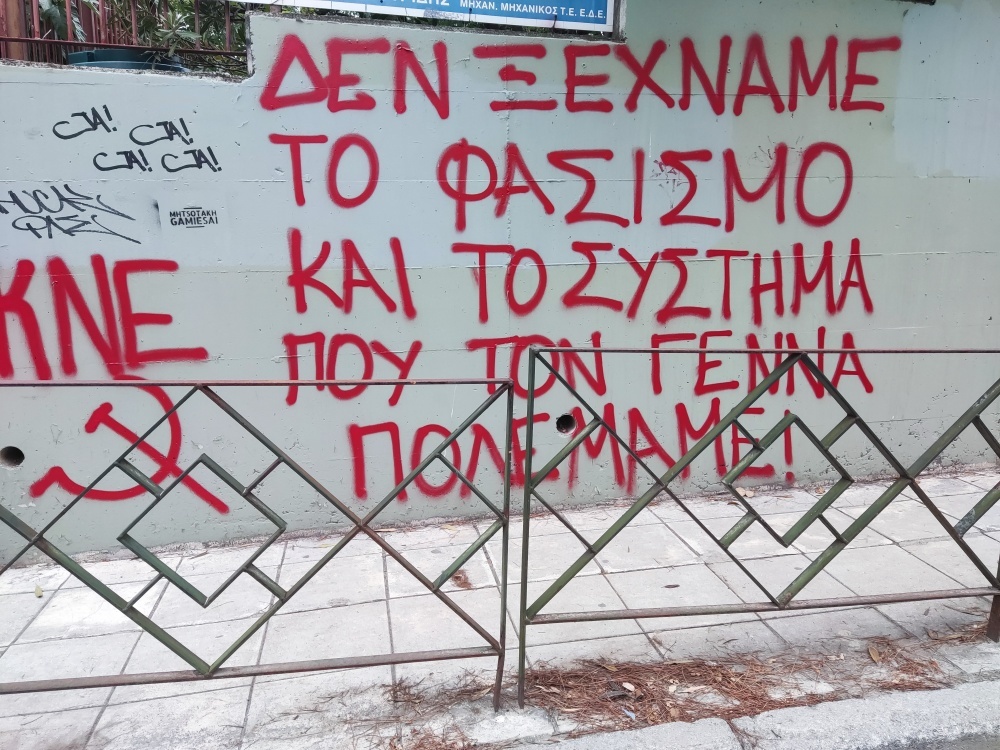 ΜΗΧΑΝ. ΜΗΧΑΝΙΚΟΣ Τ.Ε. Ε.Δ.Ε.
ΔΕΝ ΞΕΧΝΑΜΕ
ΤΟ ΦΑΣΙΣΜΟ
ΚΑΙ ΤΟ ΣΥΣΤΗΜΑ
ΠΟΥ ΤΟΝ ΓΕΝΝΑ
ΠΟΛΕΜΑΜΕ!
ΜΗΤΣΟΤΑΚΗ
GAMIESAI
ΚΝΕ